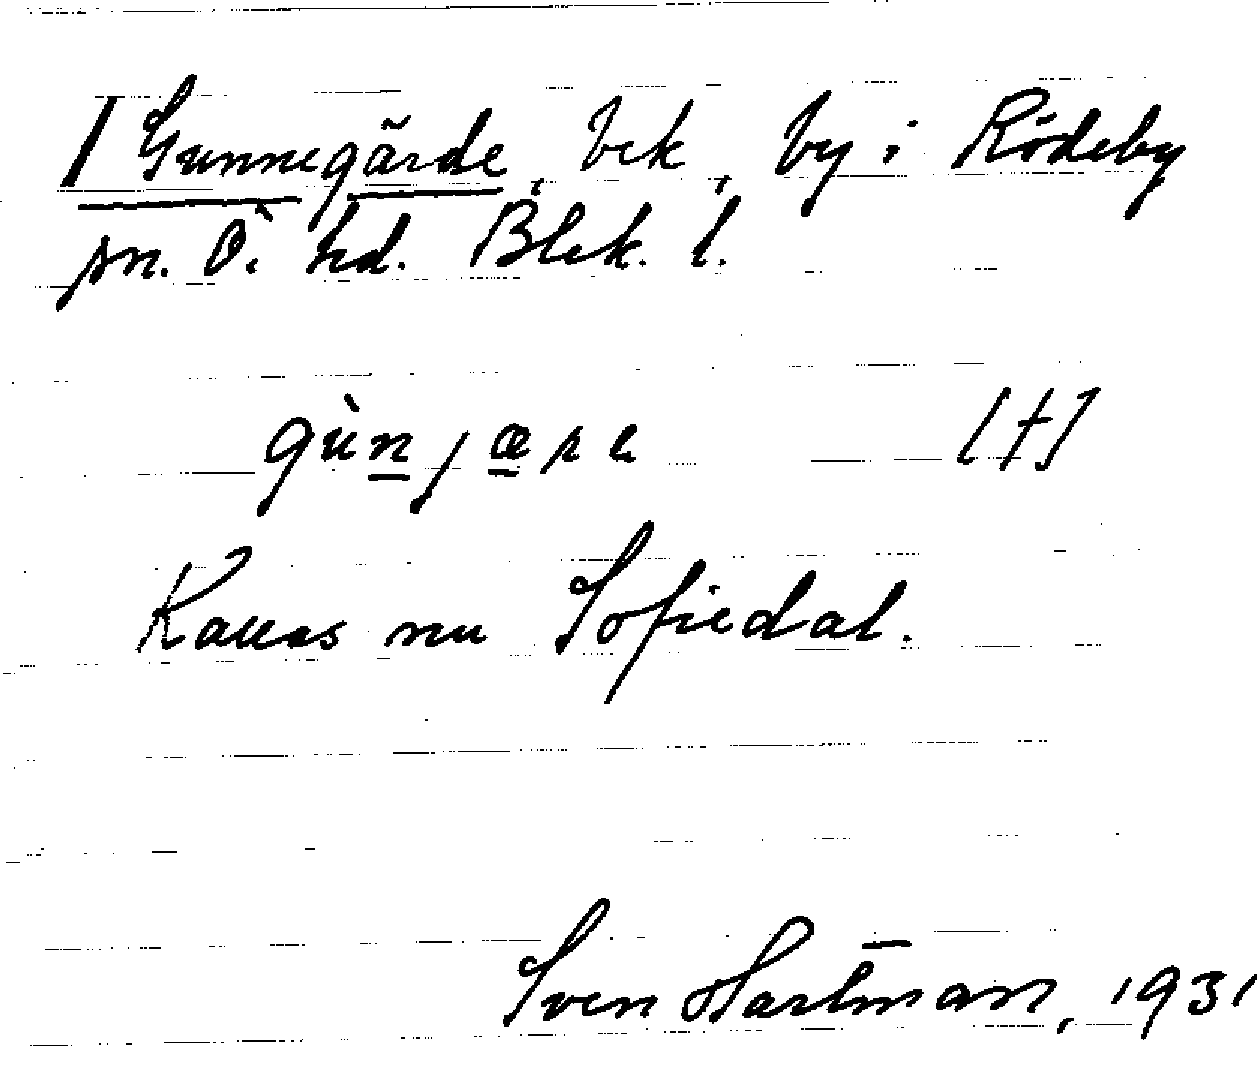 / Gunnegärde, bek, by i Rödeby
sn. Ö. hd. Blek. l.
gùnjære [†]
Kallas nu Sofiedal.
Sven Hartman, 1931